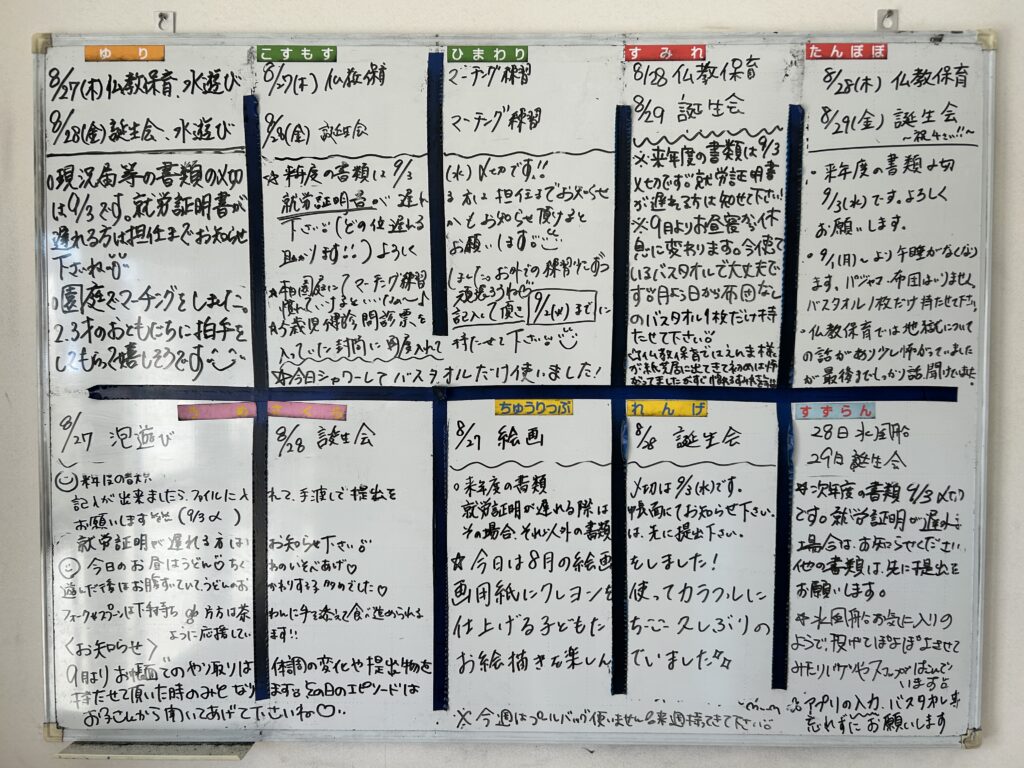 ゆり
8/27(木)仏教保育、水遊び
8/28(金)誕生会、水遊び
○現況届等の書類の〆切
は9/3です。就労証明書が
遅れる方は担任までお知らせ
下さいね
○園庭でマーチングをしました。
2.3才のおともだちに拍手を
してもらって嬉しそうです
こすもす
8/27(木) 仏教保育
8/28(金) 誕生会
☆来年度の書類は 9/3
就労証明書が 遅れ
下さい(どの位遅れる
助かります!!) よろしく
慣れていけるといいな〜♪
ひまわり
マーチング練習
マーチング練習
(水)〆切です!!
る方は担任までお知らせ
かもお知らせ頂けると
お願いします
しました。お外での練習も少しずつ
記入して頂き 9/2(水)まで に
入っていた封筒に
持たせて下さい
☆今日シャワーしてバスタオルだけ使いました!
すみれ
8/28 仏教保育
8/29 誕生会
※来年度の書類は9/3
〆切です。就労証明書
が遅れる方は知せて下さい!
※9月よりお昼寝が休
息に変わります。今使て
いるバスタオルで大丈夫で
す。月よう日から布団なし
のバスタオル1枚だけ持
たせて下さい。
たんぽぽ
8/28(木) 仏教保育
8/29(金) 誕生会
・来年度の書類〆切
9/3(水)です。よろしく
お願いします。
・9/1(月)〜より午睡がなくなり
ます。パジャマ・布団はいりません。
バスタオル1枚だけ持たせて下さい。
・仏教保育では地獄について
の話があり少し怖がっていました
が最後までしっかり話聞いていました。
8/27 泡遊び
8/28 誕生会
来年度の書類
記入が出来ましたら、ファイルに入れて、手渡しで提出を
お願いします (9/3〆)
就労証明が遅れる方は お知らせ下さい
今日のお昼はうどん♡
遊んだ後はお腹すいていてうどんのおかわりする子多めでした♡
〈お知らせ〉
9月よりお帳面でのやり取りは 体調の変化や提出物を
持たせて頂いた時のみとなります その日のエピソードは
お子さんから聞いてあげて下さいね♡
ちゅうりっぷ
8/27 絵画
れんげ
8/28 誕生会
○来年度の書類 〆切は9/3(水)です。
就労証明が遅れる際は 帳面にてお知らせ下さい。
その場合、それ以外の書類は、先に提出下さい。
☆今日は8月の絵画をしました!
画用紙にクレヨンを使ってカラフルに
仕上げる子どもたちここ久しぶりの
お絵描きを楽しんでいました
※今週はプールバッグ使いません。来週持てきて下さい。
すずらん
28日 水風船
29日 誕生会
※次年度の書類 9/3〆切
です。就労証明が遅れる
場合は、お知らせください
他の書類は、先に提出を
お願いします。
※水風船お気に入りの
ようで、投げてぽよぽよさせて
アプリの入力、バスタオル等
忘れずにお願いします